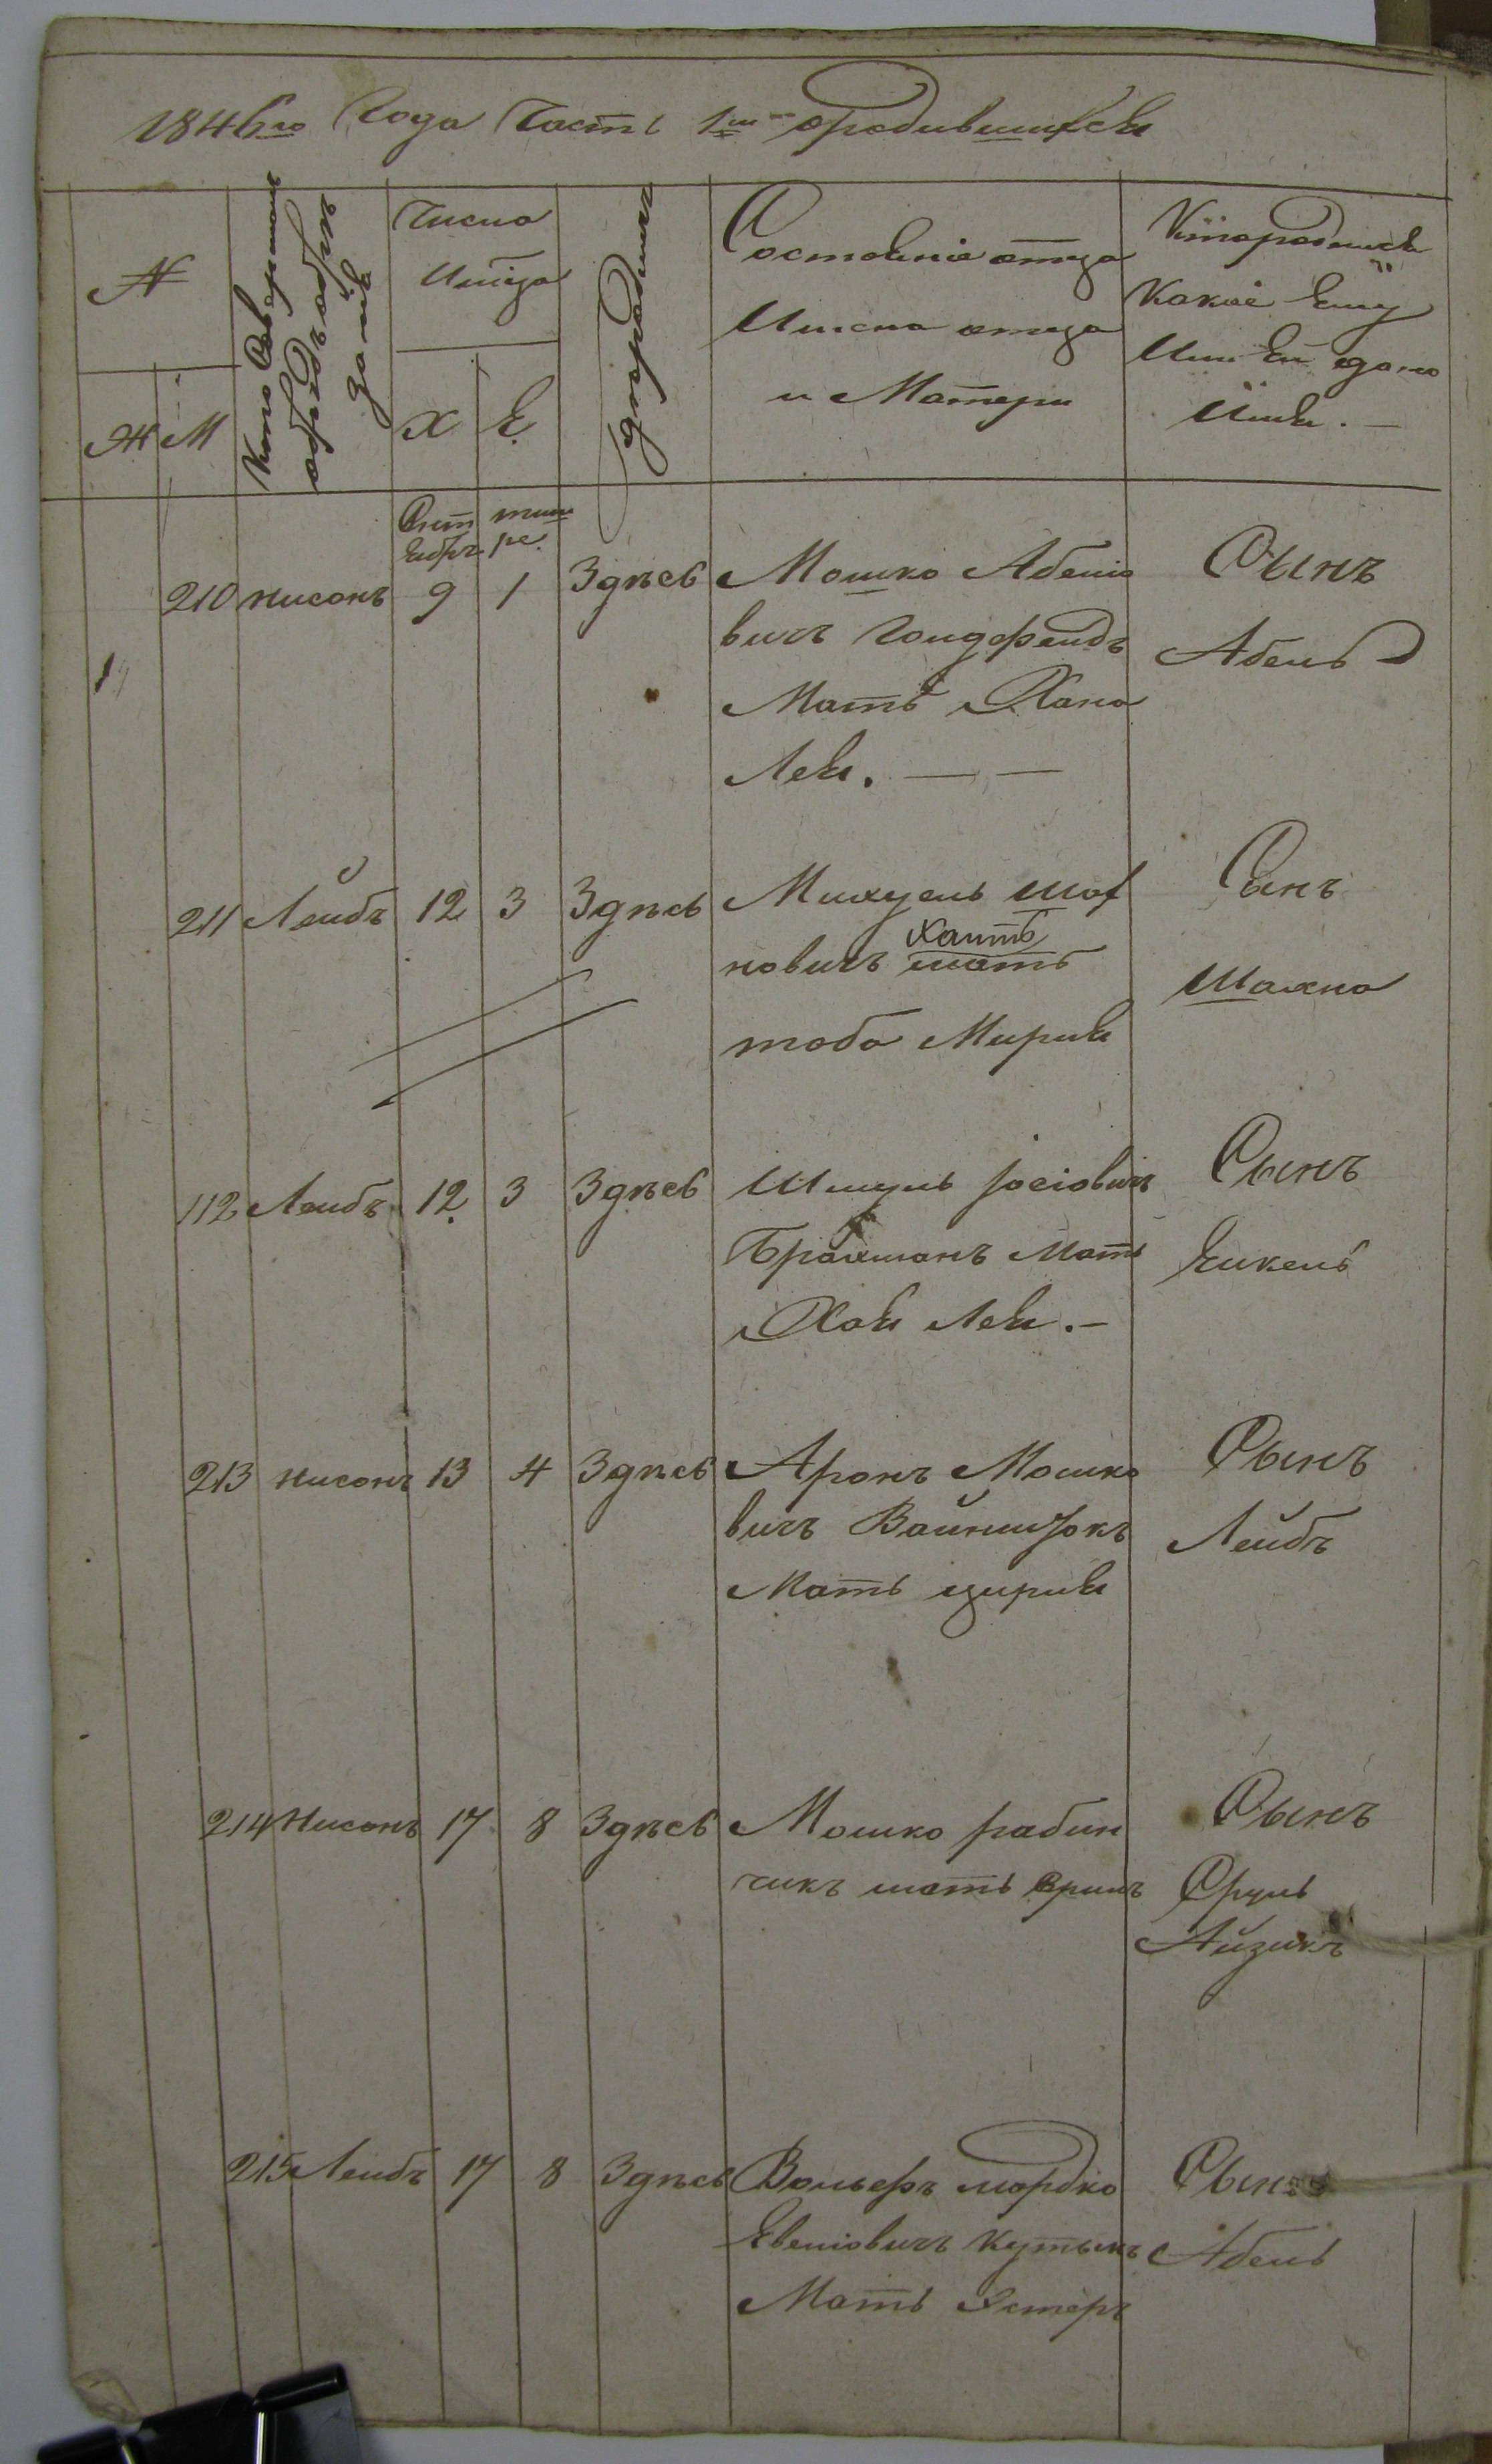 1846го Года Часть 1ая о родившихся
№
Ж М
Кто Совершалъ
обрядъ обрѣ
зания
Число
Х Е
Где родился
Состояніе отца
Имена отца
и Матери
Кто родился
Какое Ему
Или Ей дано
Имя. —
Сент тиш
ябръ ре.
210 Нисонъ 9 1 Здѣсь Мошко Абелio
вичъ Голдфелдъ
Мать Хана
Лея. — —
Сынъ
Абель
211 Лейбъ 12 3 Здѣсь Михуель Шах
новичъ Хаитъ мать
тоба Мирия
Сынъ
Шахна
112 Леибъ 12 3 Здѣсь Шмуль Іосіовичъ
Брахманъ Мать
Хая Лея. —
Сынъ
Янкель
213 Нисонъ 13 4 Здѣсь Аронъ Мошко
вичъ
Мать цирия
Сынъ
Лейбъ
214 Нисонъ 17 8 Здѣсь Мошко рабин
чикъ мать
Сынъ
Срулъ
Айзикъ
215 Леибъ 17 8 Здѣсь Вольфъ мордко
Мать Эстеръ
Сынъ
Абель